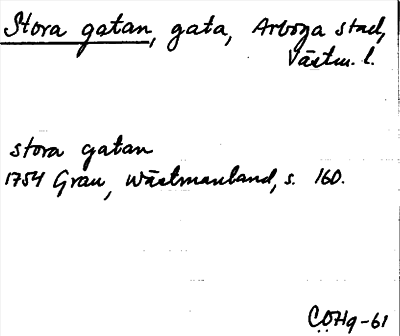 Stora gatan, gata, Arboga stad,
Västm. l.
stora gatan
1754 Grau, Wästmanland, s. 160.
CÖHg-61